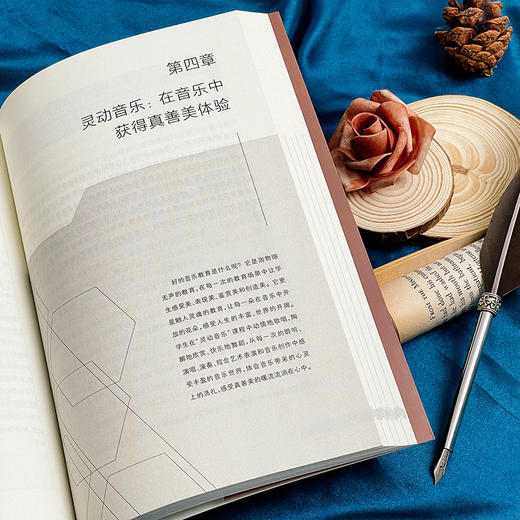 第四章
灵动音乐：在音乐中
获得真善美体验
好的音乐教育是什么呢？它是润物细
无声的教育，在每一次的教育场景中让学
生感受美、表现美、鉴赏美和创造美。它更
是触人灵魂的教育，让每一朵在音乐中开
放的花朵，感受人生的丰富、世界的开阔。
学生在“灵动音乐”课程中动情地歌唱、陶
醉地欣赏、快乐地舞蹈，从每一次的聆听、
演唱、演奏、综合艺术表演和音乐创作中感
受丰盈的音乐世界，体会音乐带来的心灵
上的洗礼，感受真善美的暖流流淌在心中。